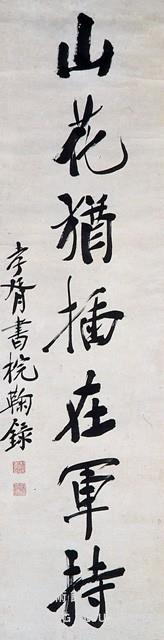 山花猶插在軍持
李胥書枕鞠錄